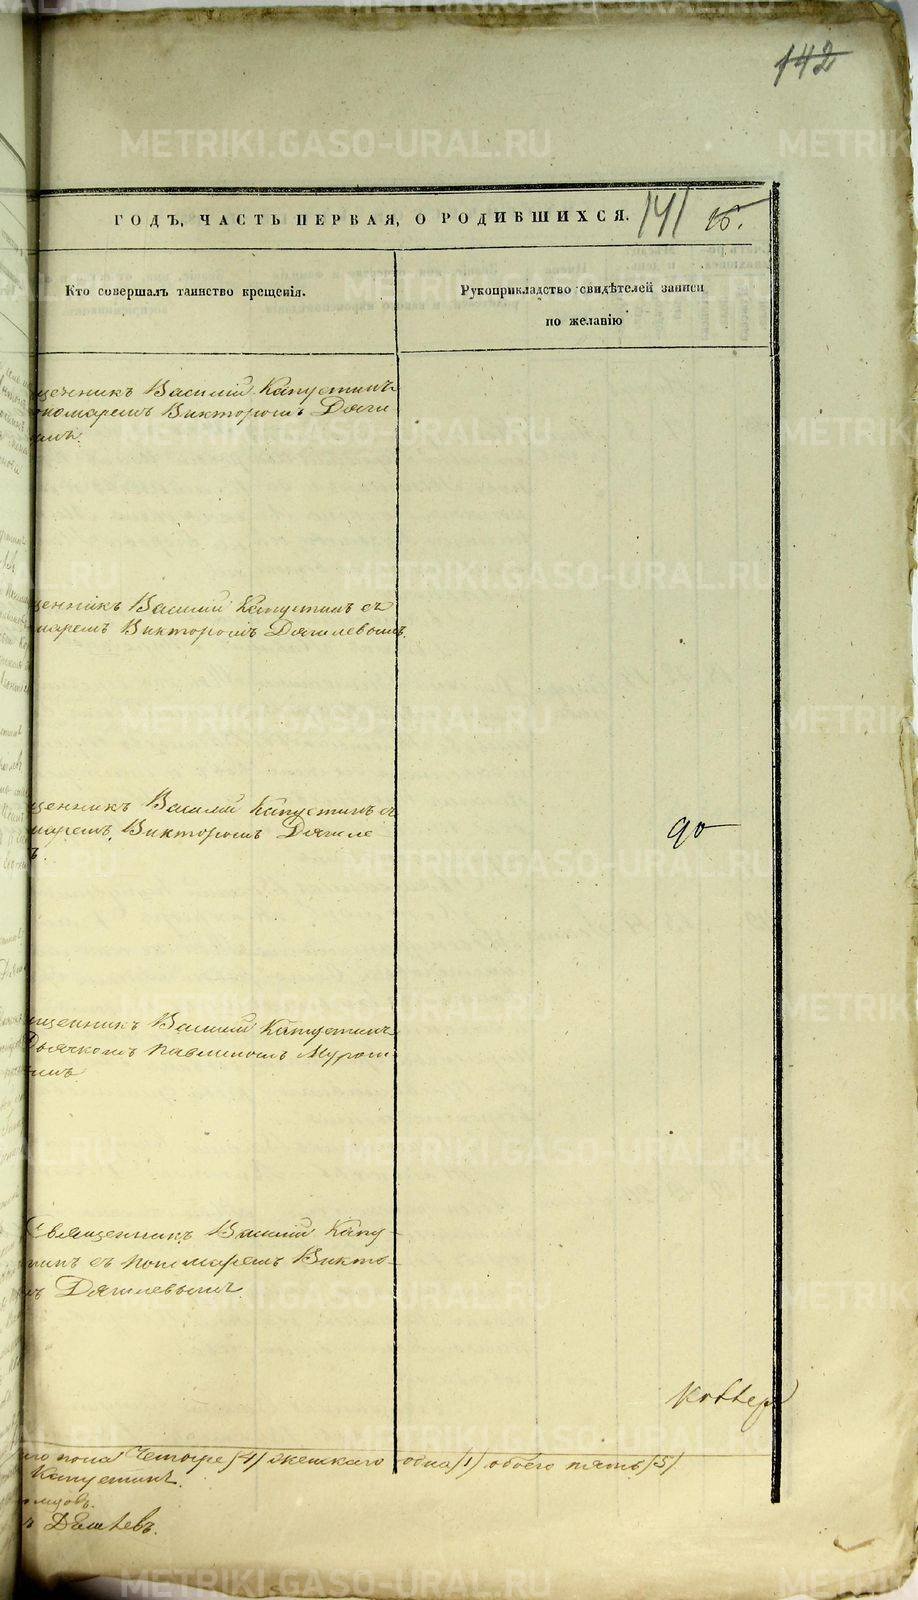 142
ГОДЪ, ЧАСТЬ ПЕРВАЯ, О РОДИВШИХСЯ. 141
Кто совершалъ таинство крещенія.
Рукоприкладство свидѣтелей записи
по желанію
щенникъ Василій Капустинъ
ономаремъ Викторомъ Дяги
щенникъ Василій Капустинъ съ
маремъ Викторомъ Дягилевымъ.
щенникъ Василій Капустинъ съ
маремъ Викторомъ Дягиле
щенникъ Василій Капустинъ
Дьячкомъ Павлиномъ
Священникъ Василій Капу-
тинъ съ пономаремъ Викто-
мъ Дягилевымъ
пола четыре /4/ женскаго одна /1/ обоего пять /5/
Капустинъ.
METRIKI.GASO-URAL.RU